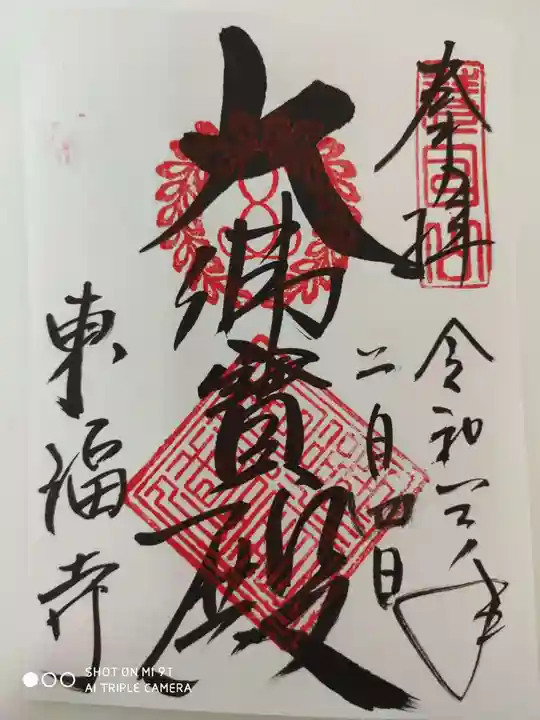 奉拝
令和三年
二月四日
大佛寳殿
東福寺
SHOT ON MI 9T
AI TRIPLE CAMERA